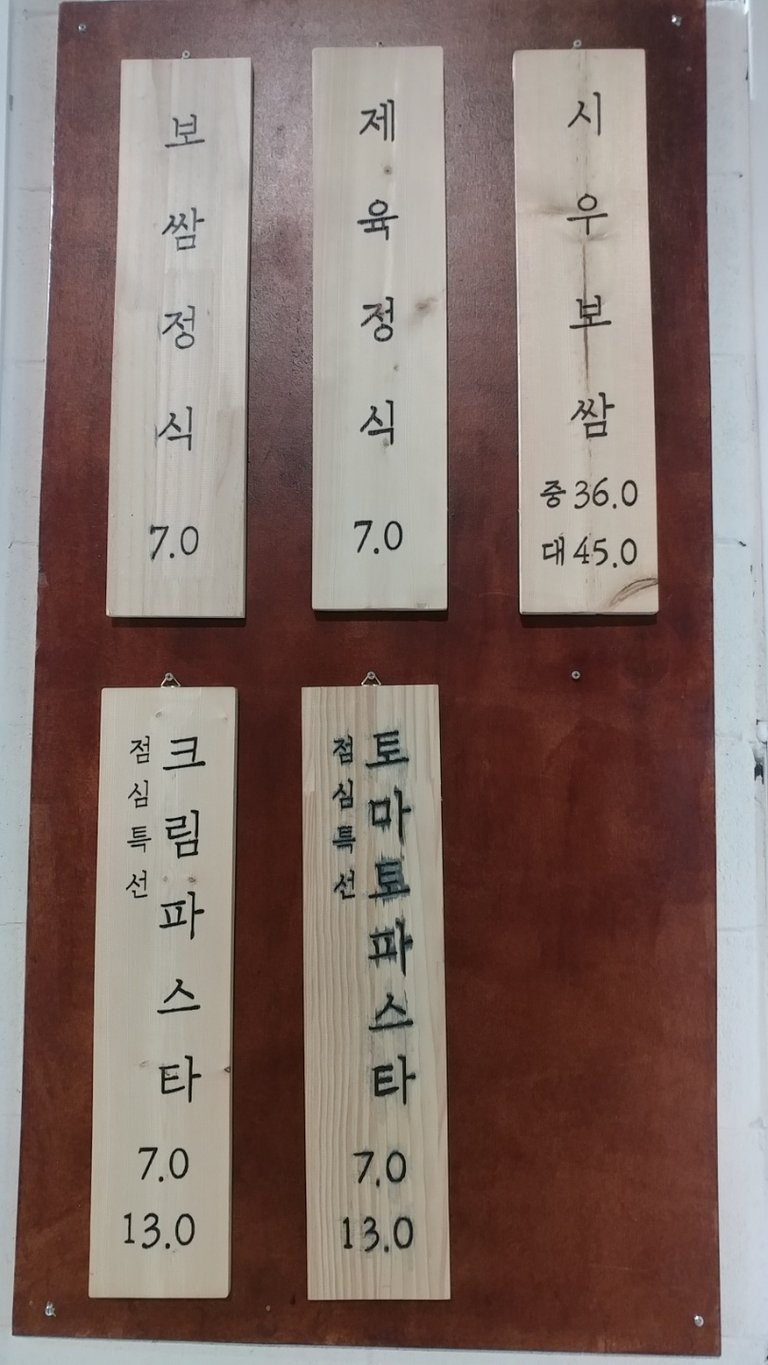 보쌈정식
7.0
제육정식
7.0
시우보쌈
중 36.0
대 45.0
점심특선
크림파스타
7.0
13.0
점심특선
토마토파스타
7.0
13.0